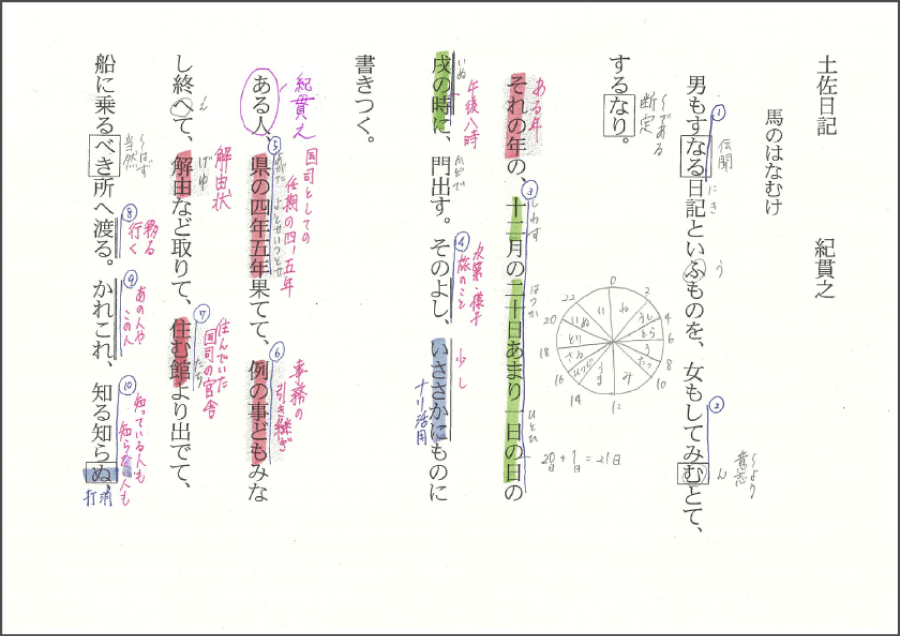 土佐日記　紀貫之
馬のはなむけ
①
伝聞
にき
う
②
ん
～より
意志
男もすなる日記といふものを、女もしてみむとて、
～である
断定
するなり。
0
2
4
6
8
10
12
14
16
18
20
22
ね
うし
とら
う
たつ
み
うま
ひつじ
さる
とり
いぬ
い
20日+1日=21日
ある年
③
しわす
はつか
ひとひ
それの年の、十二月の二十日あまり一日の日の
いぬ
午後八時
かどで
④
次第・様子
旅のこと
少し
ナリ活用
戌の時に、門出す。そのよし、いささかにものに
書きつく。
紀貫之
国司としての
任期の四、五年
⑤
あがた
よとせいつとせ
⑥
事務の
引き継ぎ
ある人、県の四年五年果てて、例の事どもみな
え
解由状
げゆ
⑦
住んでいた
国司の官舎
たち
し終へて、解由など取りて、住む館より出でて、
～はず
当然
⑧
移る
行く
⑨
あの人や
この人
⑩
知っている人も
知らない人も
打消
船に乗るべき所へ渡る。かれこれ、知る知らぬ、